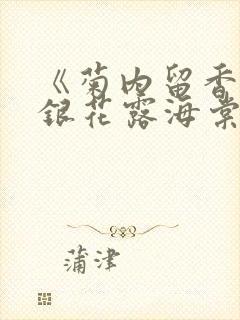 《菊内留香
银花露海棠
蒲津